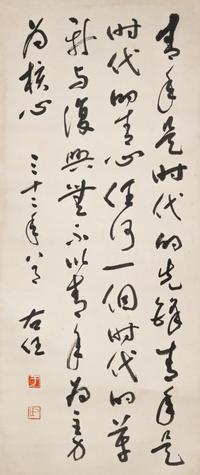 青年是时代的先鋒青年是
时代的重心任何一個时代的革
新与復興無不以青年為主力
為核心 三十二年八月 右任